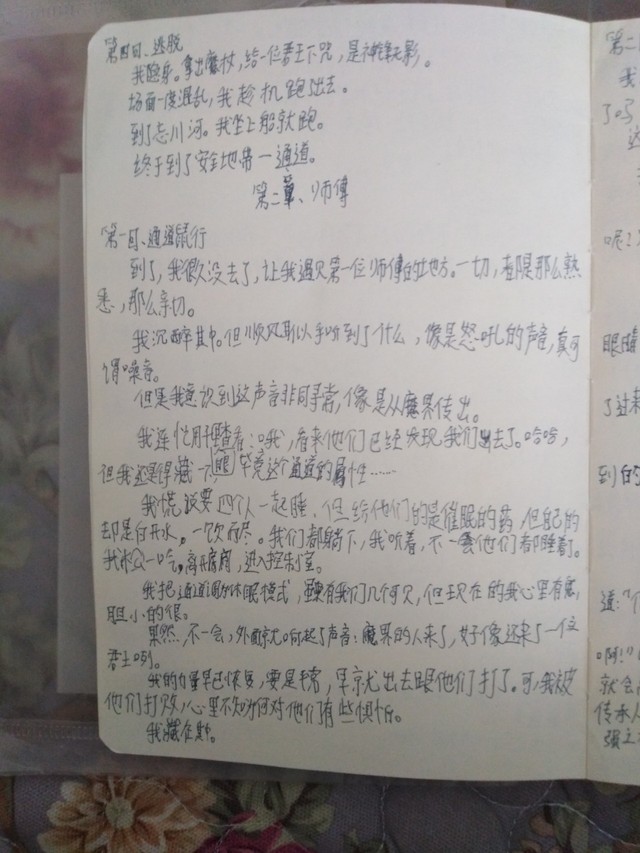 第四回、逃脱
我隐身。拿出魔杖,给一位君王下咒,是神雏无影。
场面一度混乱,我趁机跑了出去。
到了忘川河。我坐上船就跑。
终于到了安全地带一通道。
第二章、师傅
第一回、通道旅行
到了,我很久没去了,让我遇见第一位师傅的地方。一切,都是那么熟
悉,那么亲切。
我沉醉其中。但顺风耳似乎听到了什么,像是怒吼的声音,真可
谓噪音。
但是我意识到这声音非同寻常,像是从魔界传出。
我连忙用查看:哦,看来他们已经发现我们出去了。哈哈,
但我还是得藏一下,毕竟这个通道的属性……
我慌说要四个人一起睡,但给他们的是催眠的药,但自己的
却是白开水,一饮而尽。我们都躺下,我听着,不一会他们都睡着了。
我一,离开房间,进入控制室。
我把通道调为休眠模式,虽有我们几个可见,但现在的我心里有底,
胆小的很。
果然,不一会,外面就响起了声音:魔界的人来了,好像还来了一位
君主哟。
我的力量早已恢复,要是平常,早就出去跟他们打了。可,我被
他们打败,心里不知为何对他们有些惧怕。
我藏在
第二
我
了吗
这
呢?
眼睛
了过来
到的
道:"
啊!
就会
传承人
强之